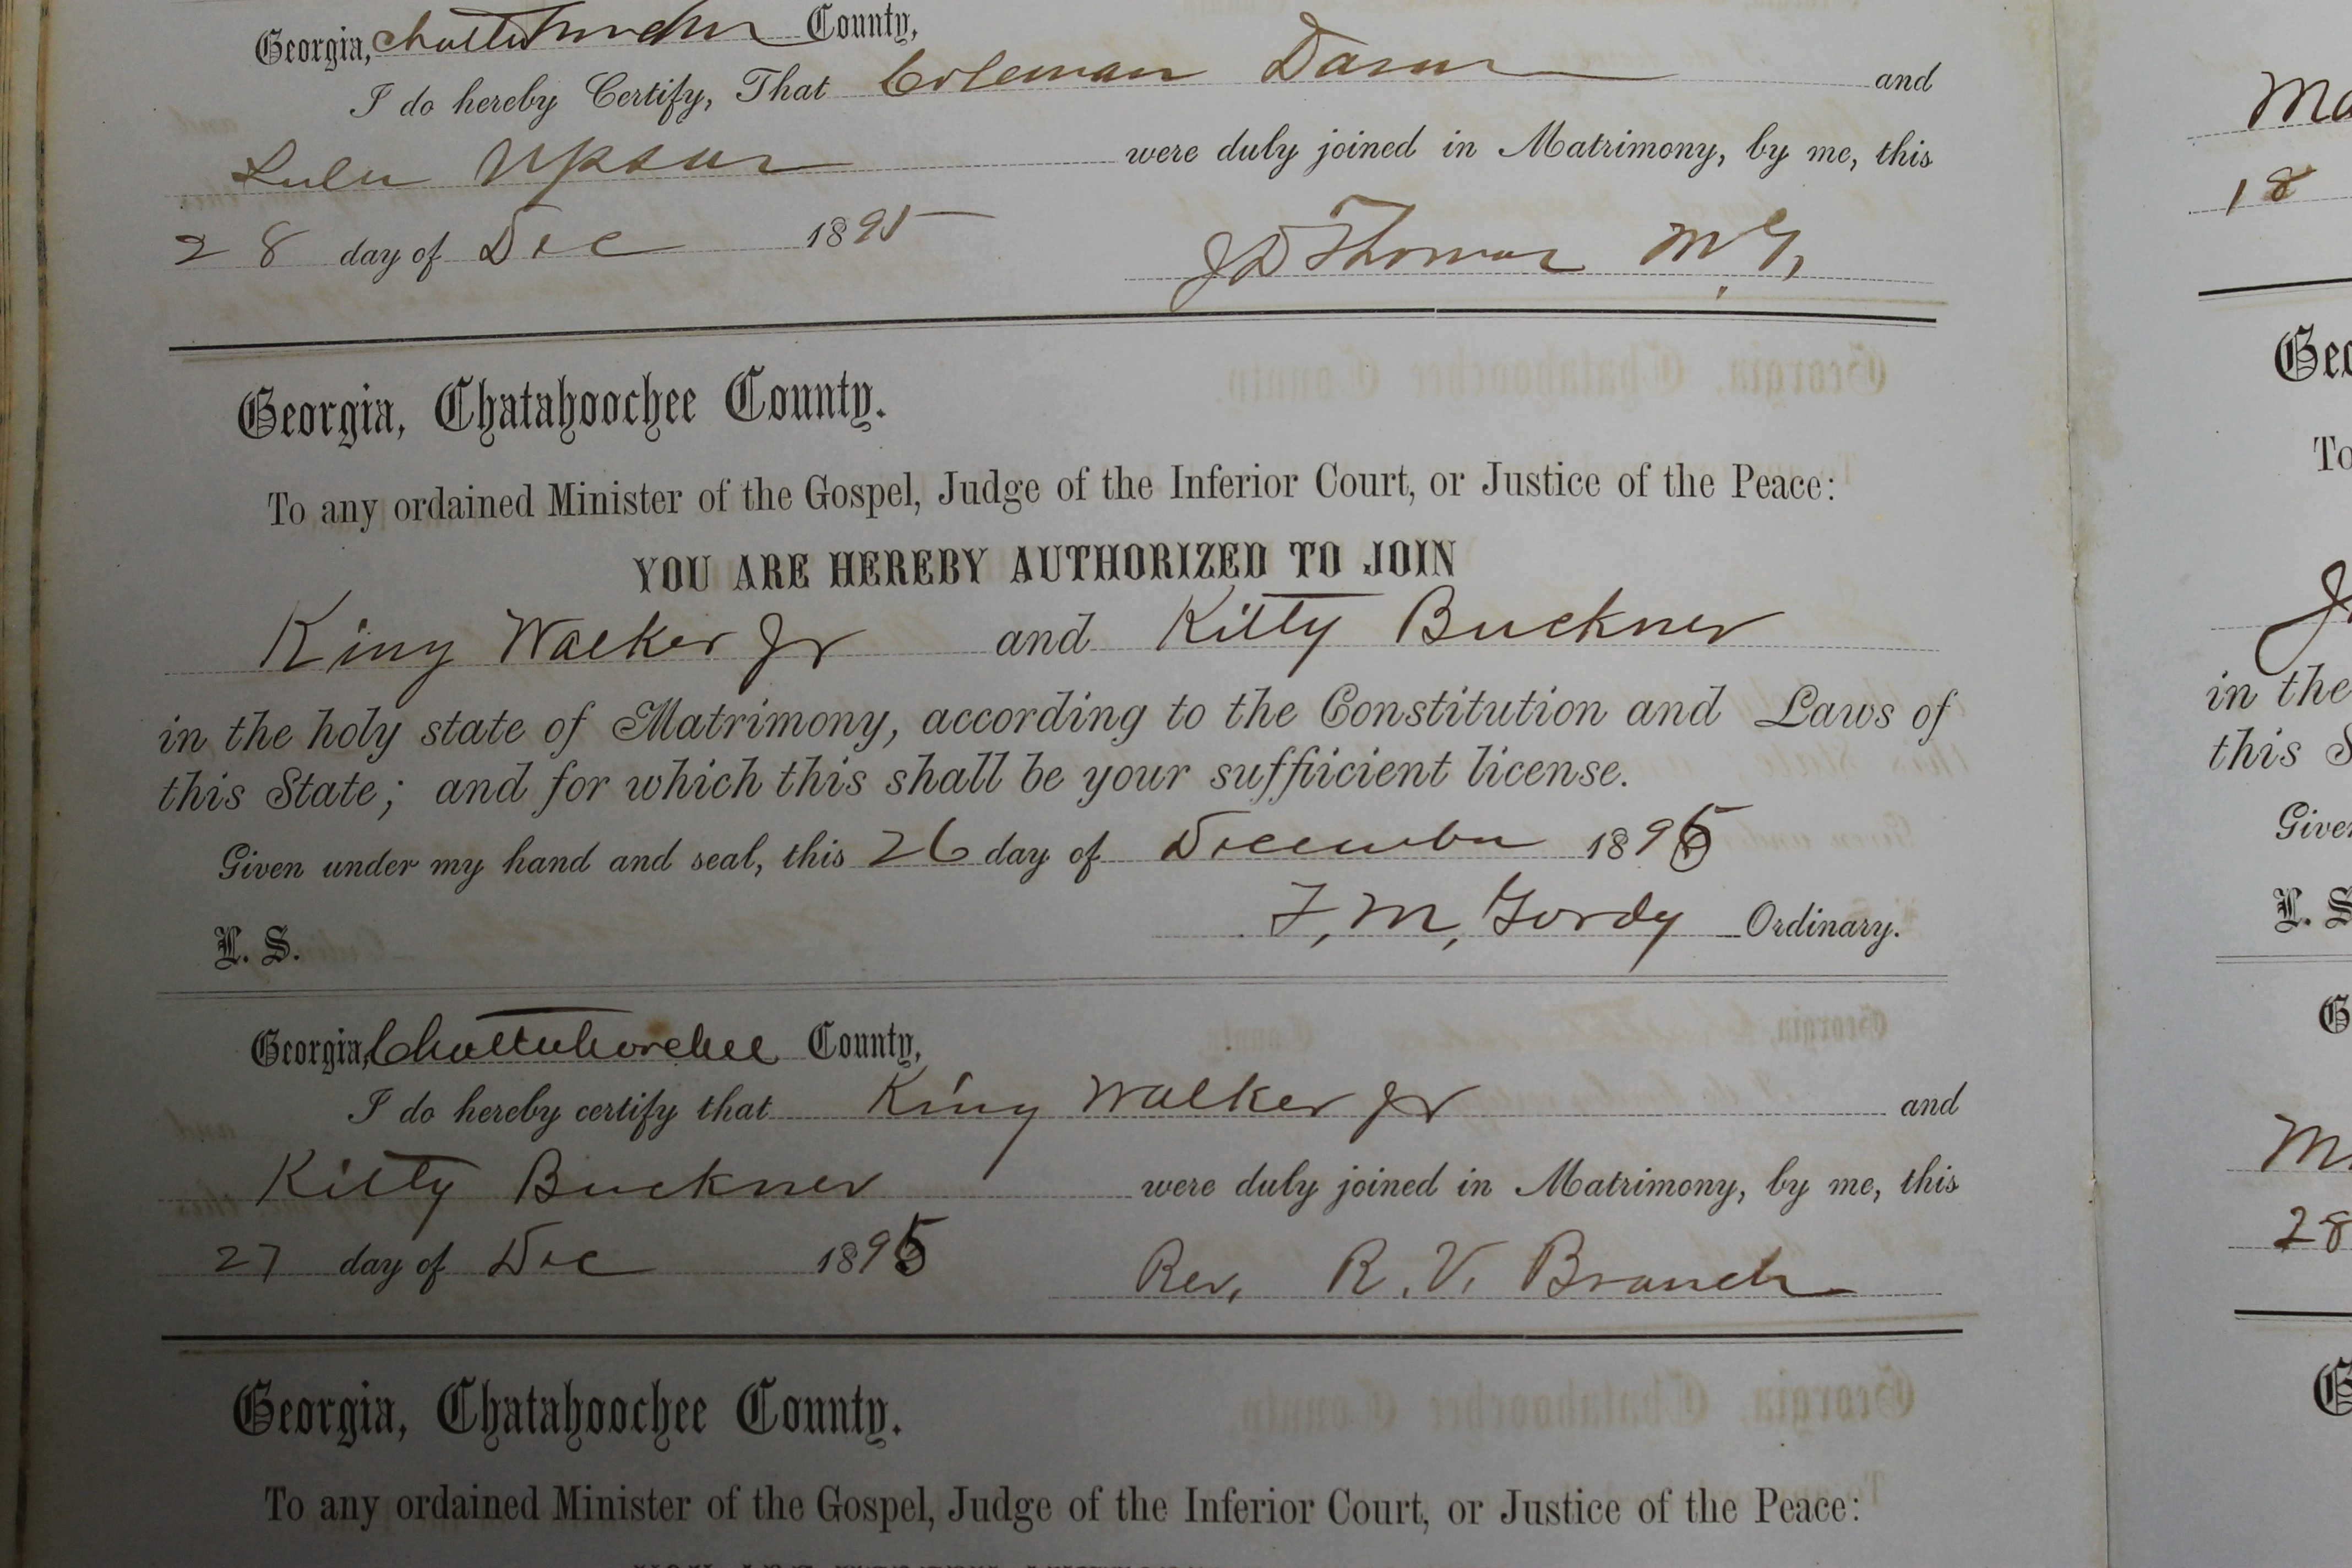 Georgia, Chattahoochee County,
I do hereby Certify, That Coleman and
Lula Upson were duly joined in Matrimony, by me, this
28 day of Dec 1895
JD Thomas M G,
Georgia, Chatahoochee County.
To any ordained Minister of the Gospel, Judge of the Inferior Court, or Justice of the Peace:
YOU ARE HEREBY AUTHORIZED TO JOIN
King Walker Jr and Kitty Buckner
in the holy state of Matrimony, according to the Constitution and Laws of
this State; and for which this shall be your suffiicient license.
Given under my hand and seal, this 26 day of December 1895
F, M, Gordy Ordinary.
L. S.
Georgia, Chattahoochee County,
I do hereby certify that King Walker Jr and
Kitty Buckner were duly joined in Matrimony, by me, this
27 day of Dec 1895
Rev, R. V. Branch
Georgia, Chatahoochee County.
To any ordained Minister of the Gospel, Judge of the Inferior Court, or Justice of the Peace:
18
To
in the
this S
L. S
28